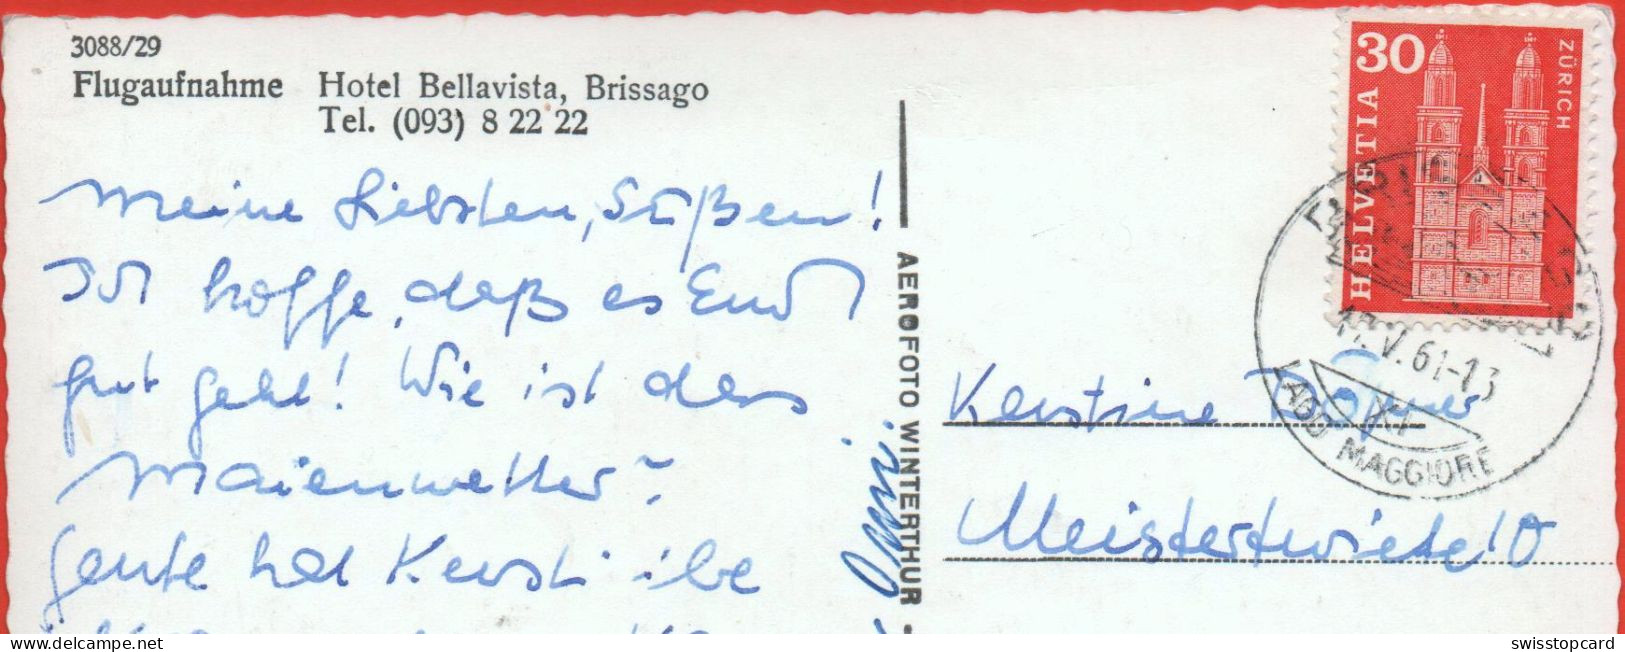 3088/29
Flugaufnahme Hotel Bellavista, Brissago
Tel. (093) 8 22 22
Meine Liebsten, Süßen!
Ich hoffe, daß es Euch
gut geht! Wie ist das
Maienwetter?
Heute hat Kersti ihre
AEROFOTO WINTERTHUR
Omi
30
ZÜRICH
HELVETIA
V. 61-13
LAGO MAGGIORE
Kerstine
Meistertwiete 10
swisstopcard